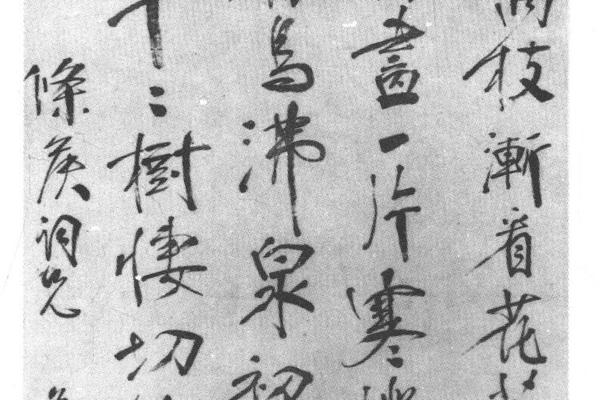 枝漸看花
盡一片寒
鳥沸泉初
十二樹悽切
條侯詞兄